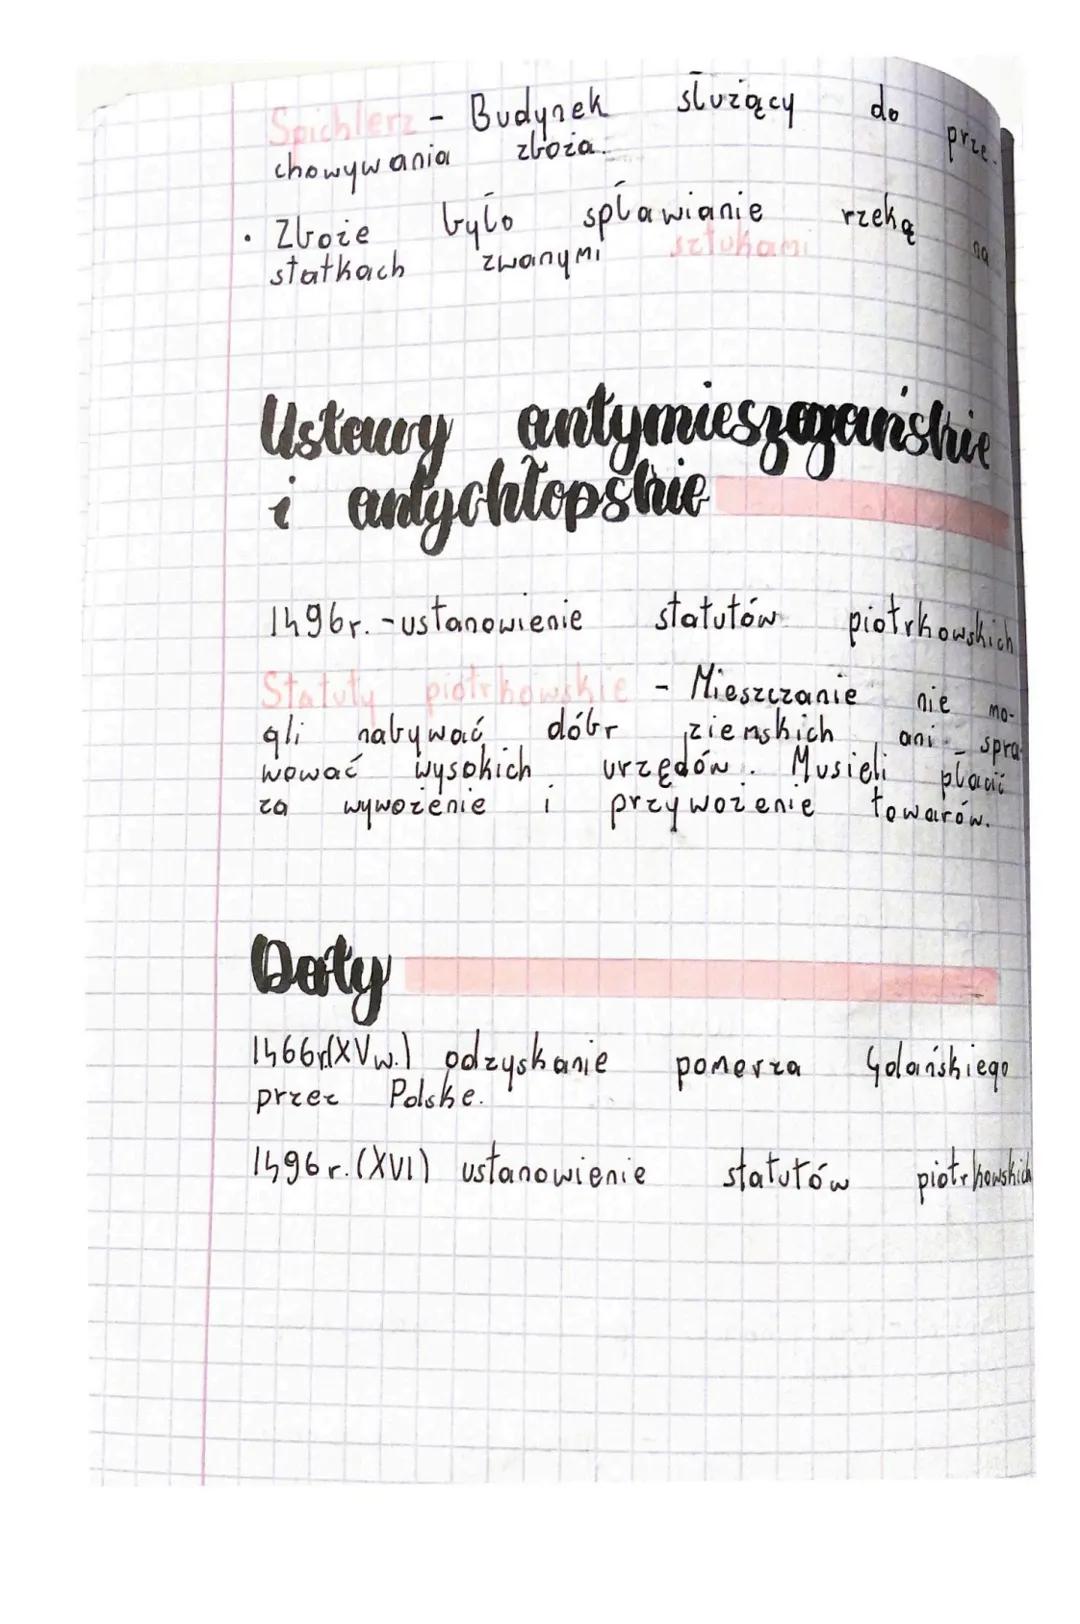 Spichlerz - Budynek służący do prze-
chowywania zboża.
• Zboże było spławianie rzeką na
statkach zwanymi sztukami
Ustawy antymieszczańskie
i antychłopskie
1496r. - ustanowienie statutów piotrkowskich
Statuty piotrkowskie - Mieszczanie nie mo-
gli nabywać dóbr ziemskich ani spra-
wować wysokich urzędów. Musieli płacić
za wywożenie i przywożenie towarów.
Daty
1466r(XVw.) odzyskanie pomorza Gdańskiego
przez Polskę.
1496r. (XVI) ustanowienie statutów piotrkowskich